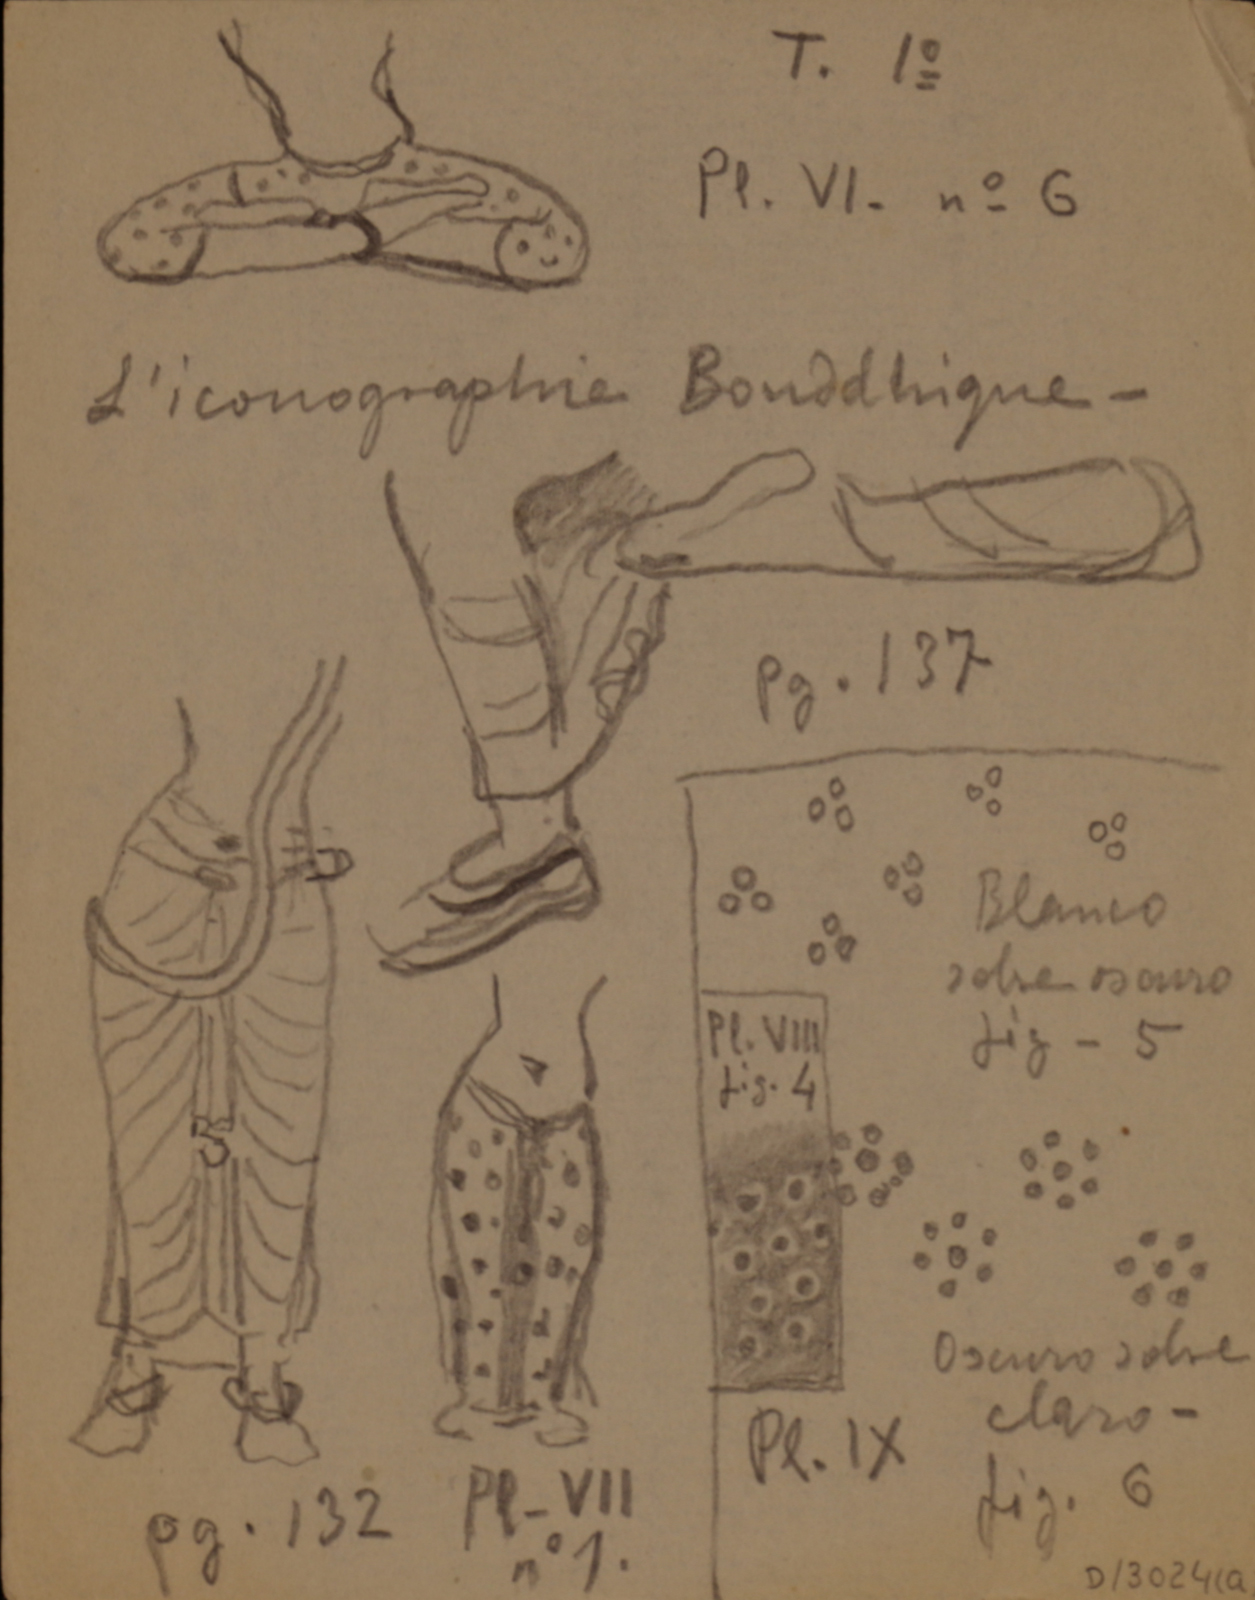 T. 1º
Pl. VI. nº 6
L'iconographie Bouddhique-
pg. 137
Blanco
sobre oscuro
fig - 5
Pl. VIII
fig. 4
Oscuro sobre
claro-
fig. 6
Pl. IX
pg. 132
Pl- VII
nº 1.
D/3024(a